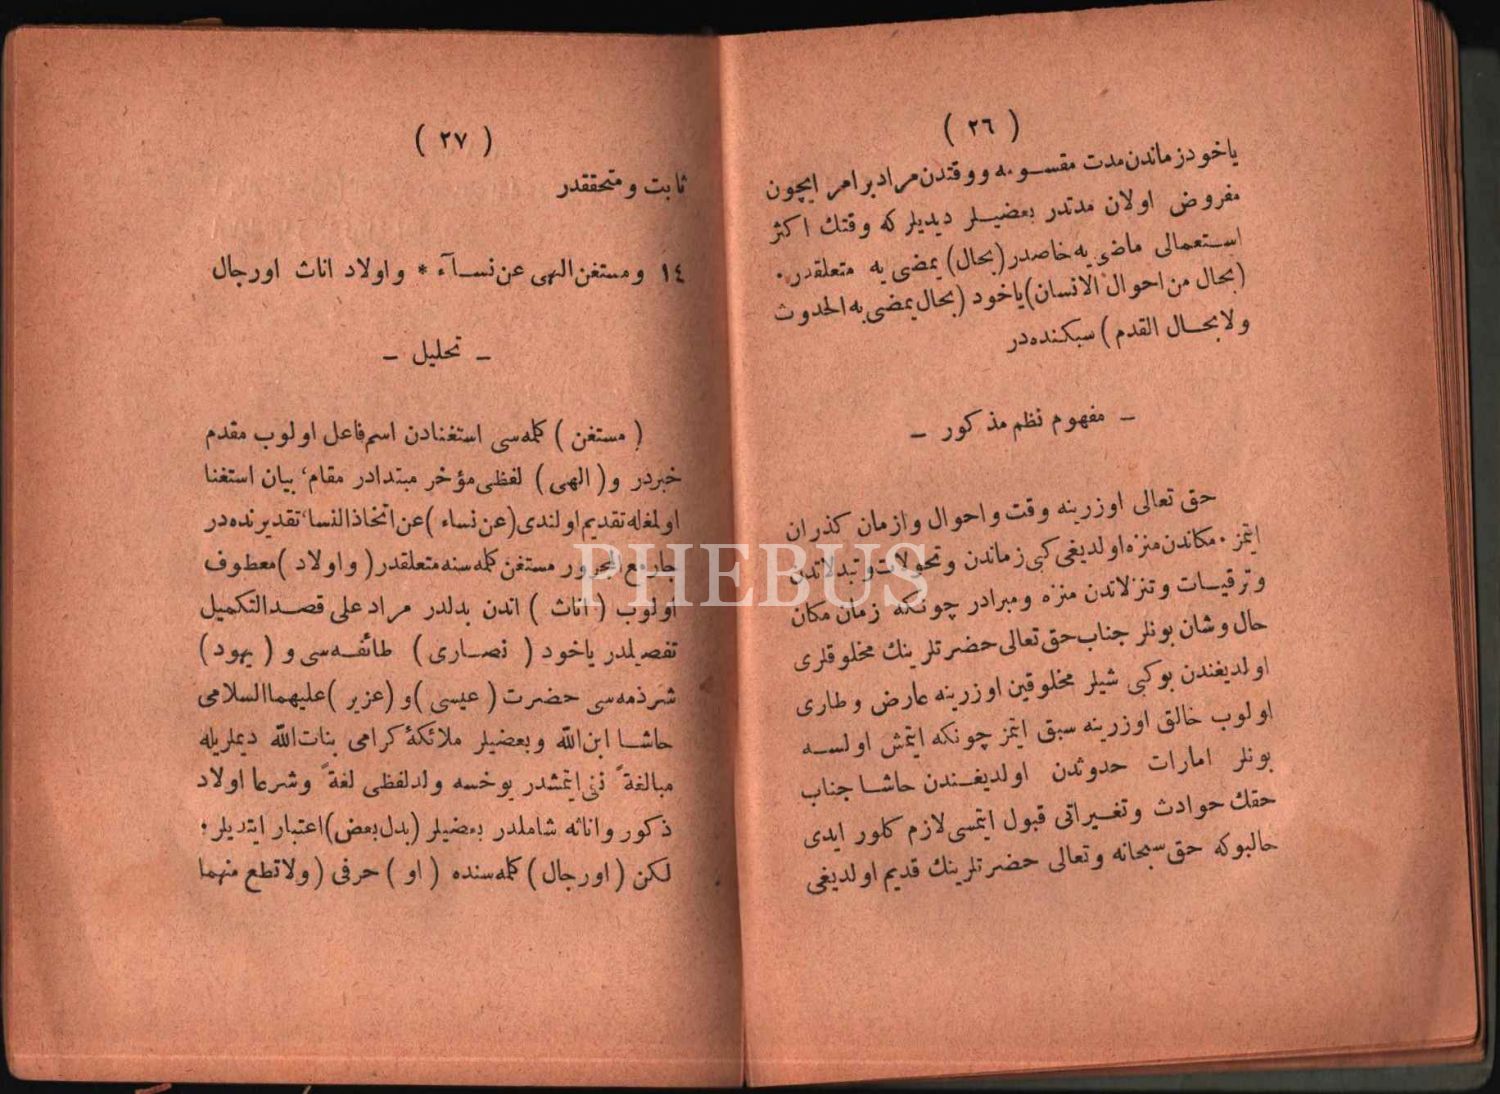 ( ٢٦ )
ياخود زماندن مدت مقسومه ووقتدن مراد بر امر ايچون
مفروض اولان مدتدر بعضيلر ديديلر كه وقتك اكثر
استعمالى ماضى يه خاصدر (بحال) يمضى يه متعلقدر.
(بحال من احوال الانسان) ياخود (بحال يمضى به الحدوث
ولا بحال القدم) سبكنده در
ــ مفهوم نظم مذكور ــ
حق تعالى اوزرينه وقت واحوال وازمان كذران
ايتمز. مكاندن منزه اولديغى كبى زماندن وتحولات وتبدلاتدن
وترقيات وتنزلاتدن منزه ومبرادر چونكه زمان مكان
حال وشان بونلر جناب حق تعالى حضرتلرينك مخلوقلرى
اولديغندن بوكبى شيلر مخلوقين اوزرينه عارض وطارى
اولوب خالق اوزرينه سبق ايتمز چونكه ايتمش اولسه
بونلر امارات حدوثدن اولديغندن حاشا جناب
حقك حوادث وتغيراتى قبول ايتمسى لازم كلور ايدى
حالبوكه حق سبحانه وتعالى حضرتلرينك قديم اولديغى
( ٢٧ )
ثابت ومتحققدر
١٤ ومستغن الهى عن نسآء * واولاد اناث اورجال
ــ تحليل ــ
(مستغن) كلمه سى استغنادن اسم فاعل اولوب مقدم
خبردر و (الهى) لفظى مؤخر مبتدادر مقام، بيان استغنا
اولمغله تقديم اولندى (عن نساء) عن اتخاذ النساء تقديرنده در
جار مع المجرور مستغن كلمه سنه متعلقدر (واولاد) معطوف
اولوب (اناث) اندن بدلدر مراد على قصد التكميل
تفصيلدر ياخود (نصارى) طائفه سى و (يهود)
شرذمه سى حضرت (عيسى) و (عزير) عليهما السلامى
حاشا ابن الله وبعضيلر ملائكۀ كرامى بنات الله ديملريله
مبالغةً نفى ايتمشدر يوخسه ولد لفظى لغةً وشرعا اولاد
ذكور واناثه شاملدر بعضيلر (بدل بعض) اعتبار ايتديلر.
لكن (اورجال) كلمه سنده (او) حرفى (ولا تطع منهما
PHEBUS